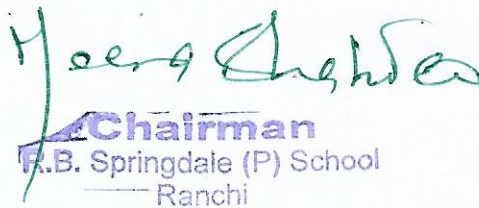 Meena
Chairman
R.B. Springdale (P) School
Ranchi